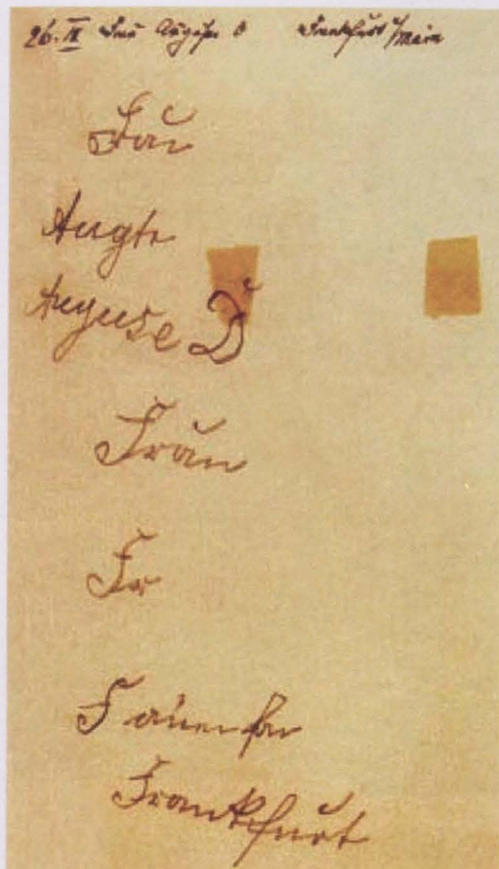 26. IX Frau Auguste D Frankfurt a/Main
Frau
Augte
Auguse D
Fraun
Fr
Frankfurt